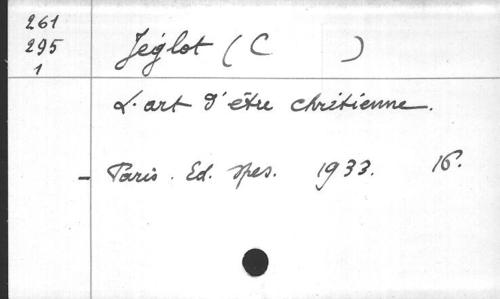 261
295
1
Jéglot (C )
L'art d'être chrétienne.
- Paris. Ed. Spes. 1933. 16°.